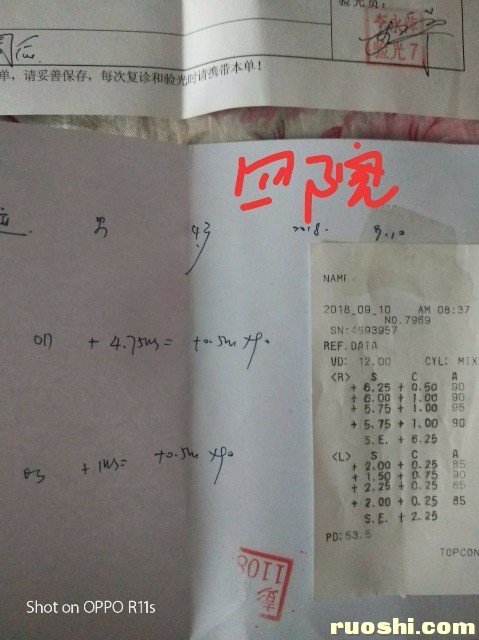 验光员:
李永萍
验光7
单,请妥善保存,每次复诊和验光时请携带本单!
四院
男
4岁
2018. 9.10
NAME
2018_09_10 AM 08:37
NO.7969
SN:4693957
REF.DATA
VD: 12.00 CYL: MIX
<R> S C A
+ 6.25 + 0.50 90
+ 6.00 + 1.00 90
+ 5.75 + 1.00 95
+ 5.75 + 1.00 90
S.E. + 6.25
<L> S C A
+ 2.00 + 0.25 85
+ 1.50 + 0.75 90
+ 2.25 + 0.25 85
+ 2.00 + 0.25 85
S.E. + 2.25
PD:53.5
TOPCON
OD + 4.75DS= +0.5DC×90
OS +1DS= +0.5DC×90
1108
Shot on OPPO R11s
ruoshi.com